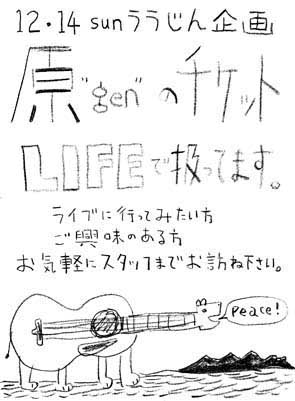 12・14 sun ううじん企画
原"gen"のチケット
LIFEで扱ってます。
ライブに行ってみたい方
ご興味のある方
お気軽にスタッフまでお訪ね下さい。
peace!